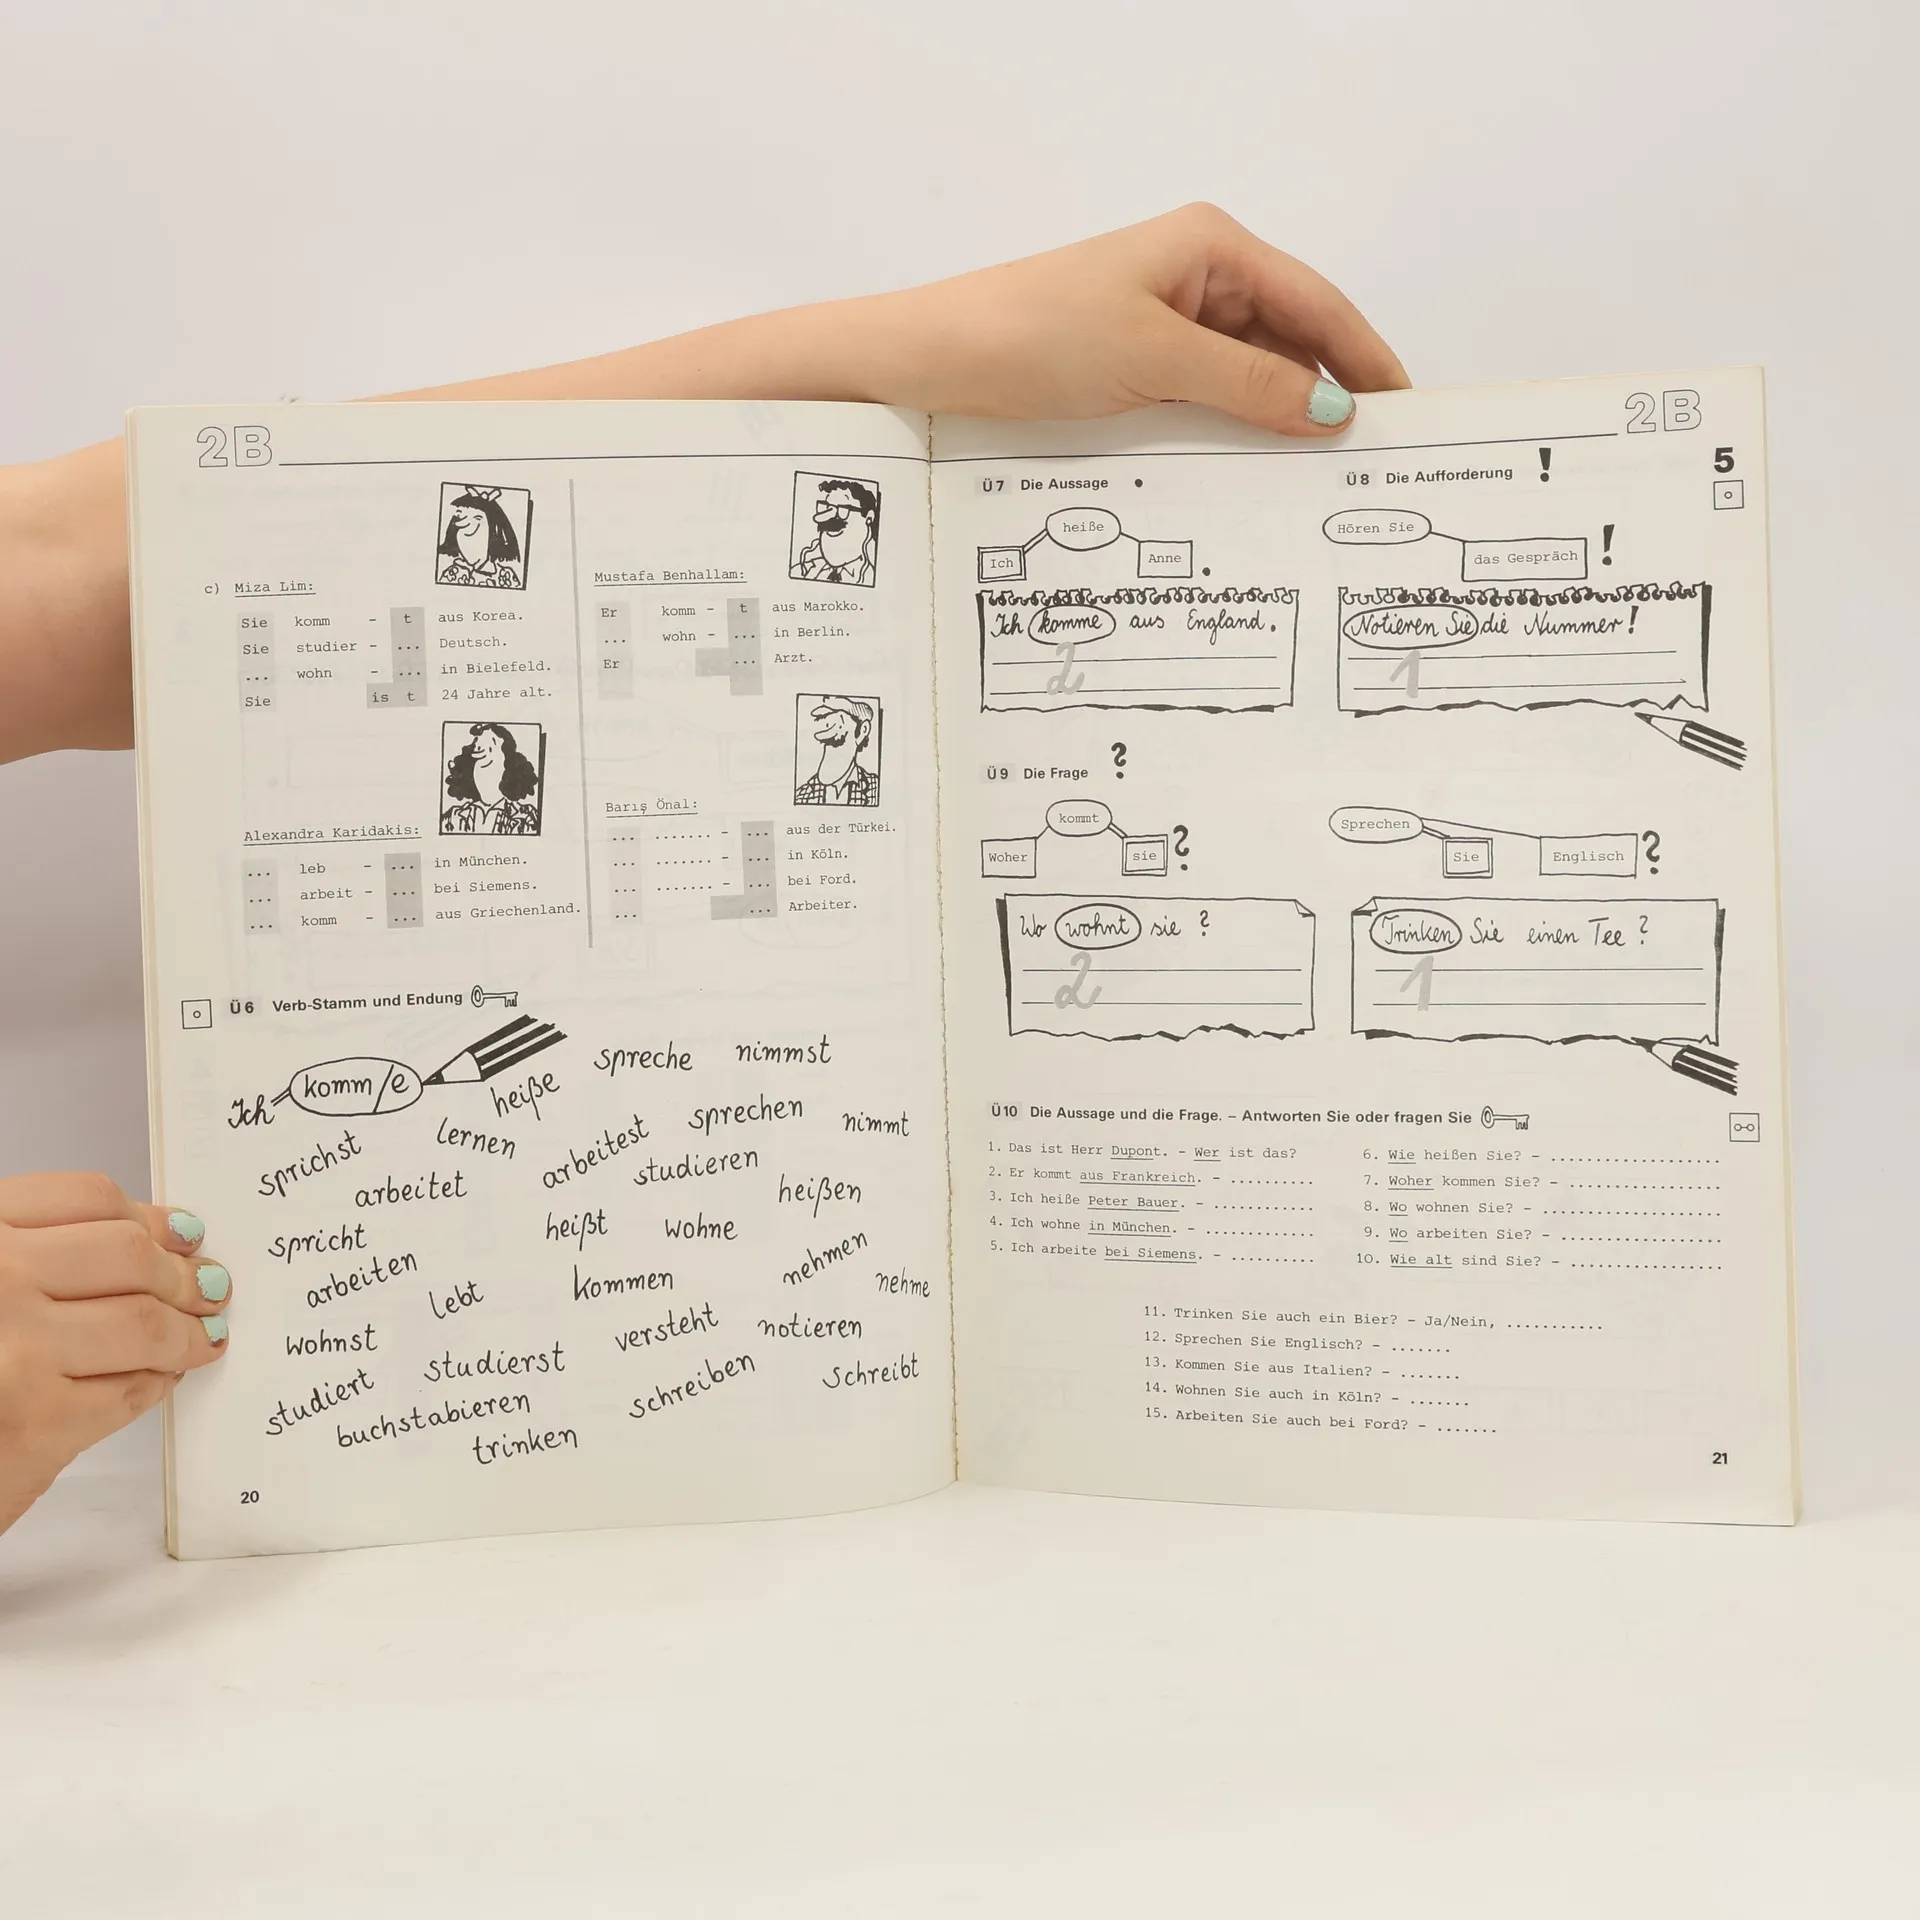 2B
c) Miza Lim:
Sie komm - t aus Korea.
Sie studier - ... Deutsch.
... wohn - ... in Bielefeld.
Sie is t 24 Jahre alt.
Mustafa Benhallam:
Er komm - t aus Marokko.
... wohn - ... in Berlin.
Er ... Arzt.
Alexandra Karidakis:
... leb - ... in München.
... arbeit - ... bei Siemens.
... komm - ... aus Griechenland.
Barış Önal:
... ....... - ... aus der Türkei.
... ....... - ... in Köln.
... ....... - ... bei Ford.
... ... Arbeiter.
Ü6 Verb-Stamm und Endung
Ich komm/e
heiße spreche nimmst
sprichst lernen arbeitest sprechen nimmt
arbeitet studieren
heißen
spricht heißt wohne
arbeiten lebt kommen nehmen
nehme
wohnst versteht notieren
studiert studierst schreiben schreibt
buchstabieren
trinken
20
2B
5
Ü7 Die Aussage .
Ich heiße Anne .
Ich komme aus England.
2
Ü8 Die Aufforderung !
Hören Sie das Gespräch !
Notieren Sie die Nummer!
1
Ü9 Die Frage ?
Woher kommt sie ?
Wo wohnt sie ?
2
Sprechen Sie Englisch ?
Trinken Sie einen Tee ?
1
Ü10 Die Aussage und die Frage. – Antworten Sie oder fragen Sie
1. Das ist Herr Dupont. - Wer ist das?
2. Er kommt aus Frankreich. - ..........
3. Ich heiße Peter Bauer. - ............
4. Ich wohne in München. - .............
5. Ich arbeite bei Siemens. - ..........
6. Wie heißen Sie? - ....................
7. Woher kommen Sie? - ..................
8. Wo wohnen Sie? - .....................
9. Wo arbeiten Sie? - ...................
10. Wie alt sind Sie? - .................
11. Trinken Sie auch ein Bier? - Ja/Nein, ...........
12. Sprechen Sie Englisch? - .......
13. Kommen Sie aus Italien? - .......
14. Wohnen Sie auch in Köln? - .......
15. Arbeiten Sie auch bei Ford? - .......
21